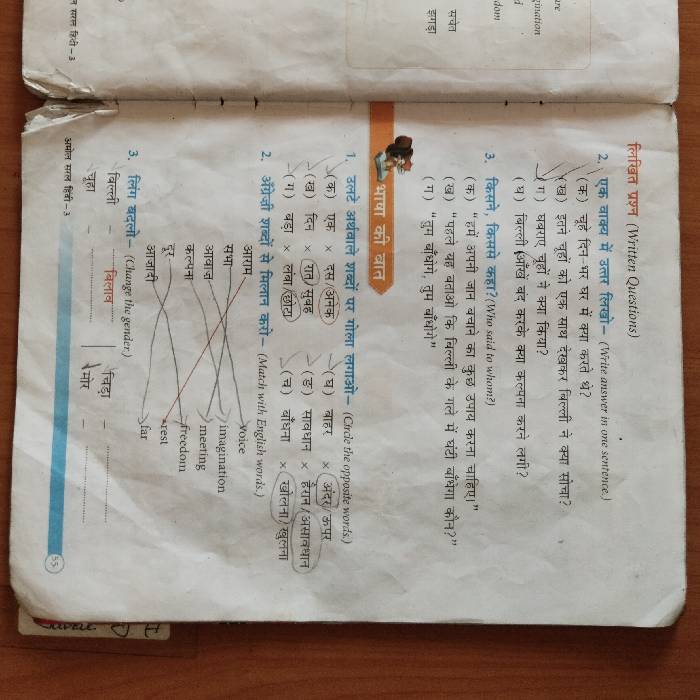 लिखित प्रश्न (Written Questions)
2. एक वाक्य में उत्तर लिखो– (Write answer in one sentence.)
(क) चूहे दिन-भर घर में क्या करते थे?
(ख) इतने चूहों को एक साथ देखकर बिल्ली ने क्या सोचा?
(ग) घबराए चूहों ने क्या किया?
(घ) बिल्ली आँखें बंद करके क्या कल्पना करने लगी?
3. किसने, किससे कहा? (Who said to whom?)
(क) "हमें अपनी जान बचाने का कुछ उपाय करना चाहिए।"
(ख) "पहले यह बताओ कि बिल्ली के गले में घंटी बाँधेगा कौन?"
(ग) "तुम बाँधोगे, तुम बाँधोगे"
भाषा की बात
1. उलटे अर्थवाले शब्दों पर गोला लगाओ– (Circle the opposite words.)
(क) एक × दस/अनेक (घ) बाहर × अंदर/ऊपर
(ख) दिन × रात/सुबह (ङ) सावधान × हैरान/असावधान
(ग) बड़ा × लंबा/छोटा (च) बाँधना × खोलना/खुलना
2. अंग्रेजी शब्दों से मिलान करो– (Match with English words.)
आराम voice
सभा imagination
आवाज meeting
कल्पना freedom
दूर rest
आजादी far
3. लिंग बदलो– (Change the gender.)
बिल्ली – बिलाव चिड़ा –
चूहा – मोर –
अमोल सरल हिंदी–3
55
सरल हिंदी–3
सचेत
झगड़ा